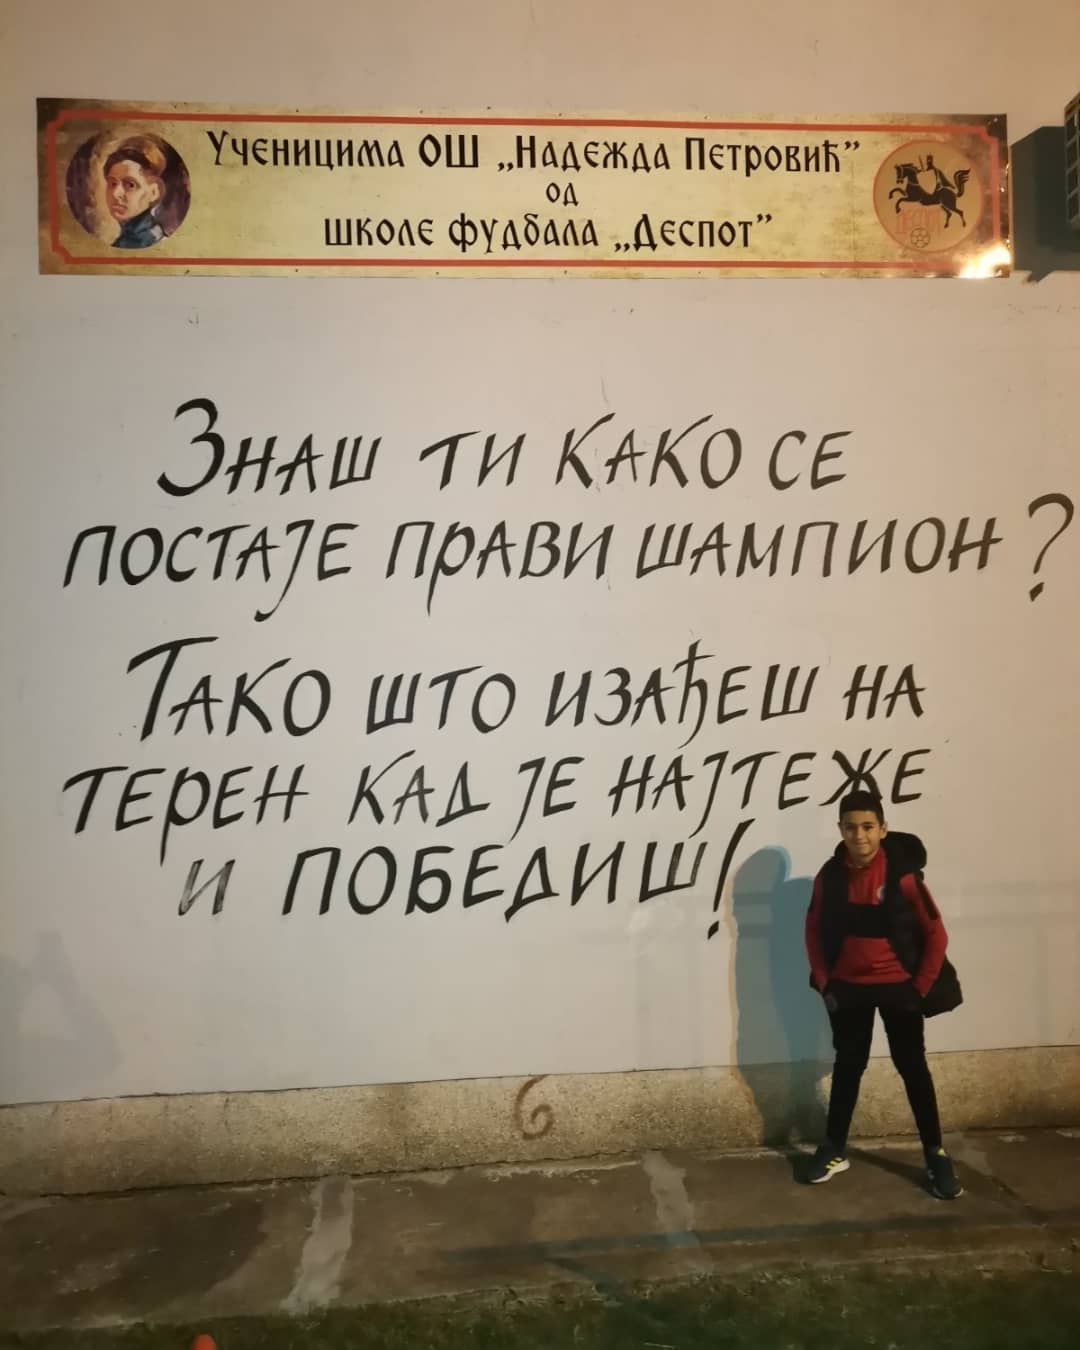 Ученицима ОШ „Надежда Петровић”
од
школе фудбала „Деспот”
Знаш ти како се
постаје прави шампион?
Тако што изађеш на
терен кад је најтеже
и победиш!
6